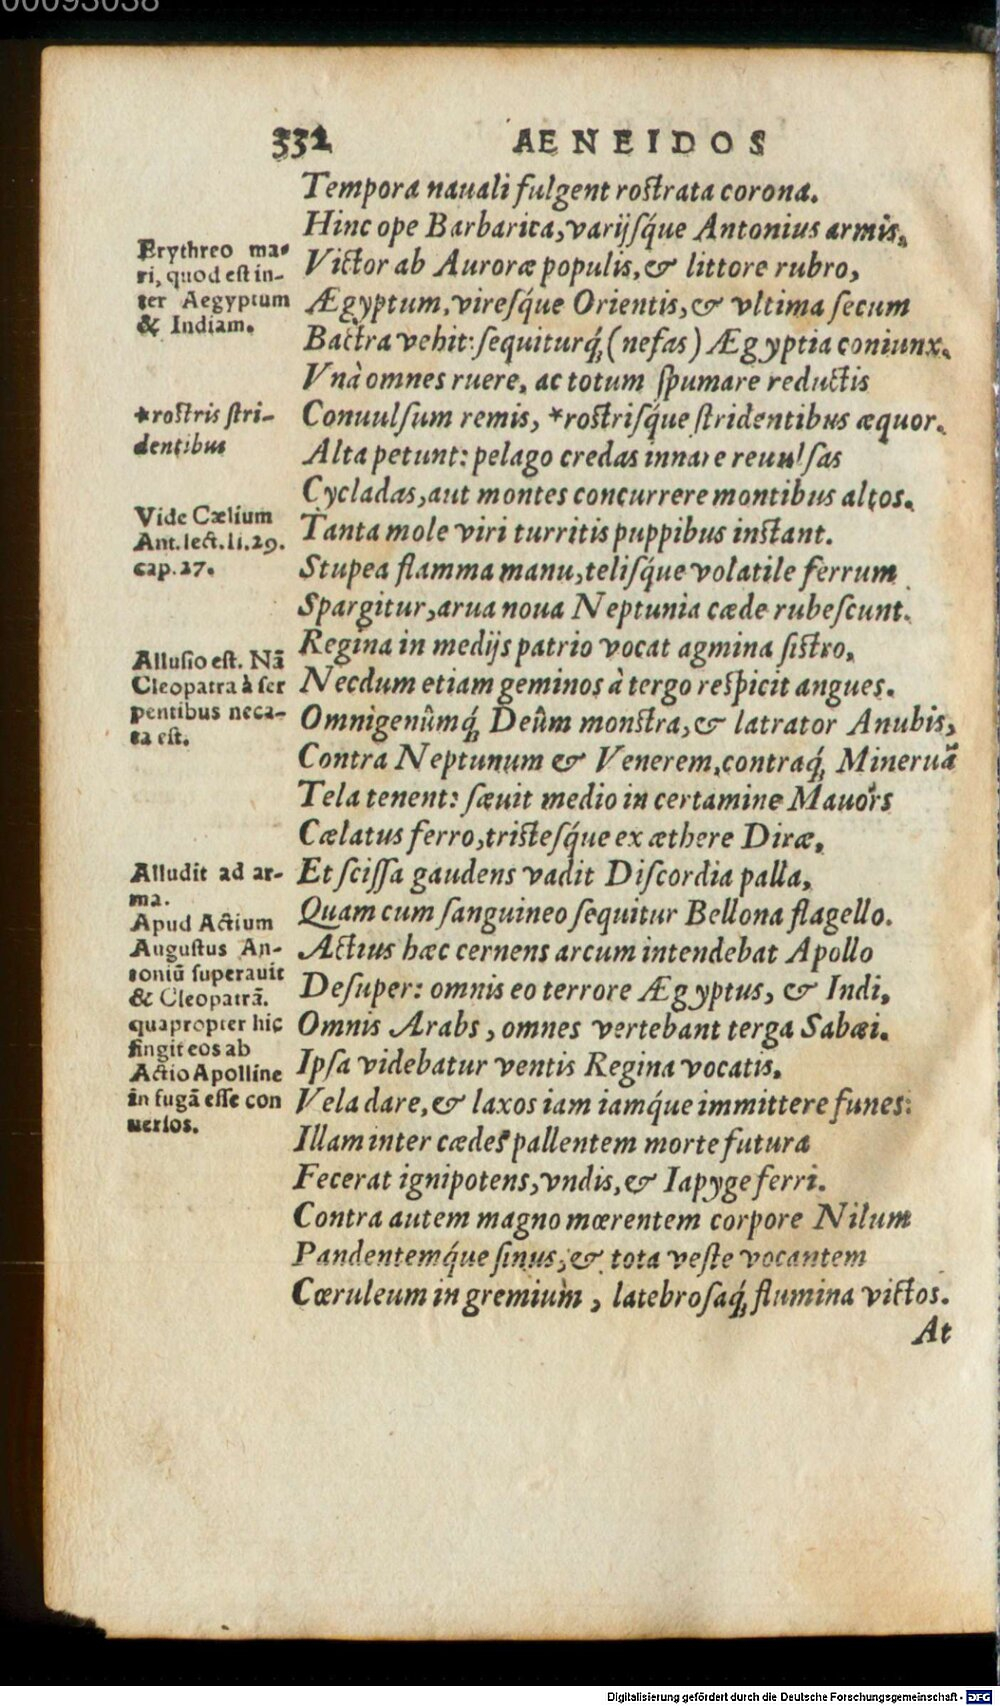 00093038
332 AENEIDOS
Tempora nauali fulgent rostrata corona.
Hinc ope Barbarica, varijsq́ue Antonius armis,
Victor ab Auroræ populis, & littore rubro,
Ægyptum, viresq́ue Orientis, & vltima secum
Bactra vehit: sequiturq́; (nefas) Ægyptia coniunx.
Vnà omnes ruere, ac totum spumare reductis
Conuulsum remis, *rostrisq́ue stridentibus æquor.
Alta petunt: pelago credas innare reuulsas
Cycladas, aut montes concurrere montibus altos.
Tanta mole viri turritis puppibus instant.
Stupea flamma manu, telisq́ue volatile ferrum
Spargitur, arua noua Neptunia cæde rubescunt.
Regina in medijs patrio vocat agmina sistro,
Necdum etiam geminos à tergo respicit angues.
Omnigenûmq́; Deûm monstra, & latrator Anubis,
Contra Neptunum & Venerem, contraq́; Mineruā
Tela tenent: sæuit medio in certamine Mauors
Cælatus ferro, tristesq́ue ex æthere Diræ,
Et scissa gaudens vadit Discordia palla,
Quam cum sanguineo sequitur Bellona flagello.
Actius hæc cernens arcum intendebat Apollo
Desuper: omnis eo terrore Ægyptus, & Indi,
Omnis Arabs, omnes vertebant terga Sabæi.
Ipsa videbatur ventis Regina vocatis,
Vela dare, & laxos iam iamq́ue immittere funes:
Illam inter cædes pallentem morte futura
Fecerat ignipotens, vndis, & Iapyge ferri.
Contra autem magno mœrentem corpore Nilum
Pandentemq́ue sinus, & tota veste vocantem
Cæruleum in gremium, latebrosaq́; flumina victos.
At
Erythreo ma-
ri, quod est in-
ter Aegyptum
& Indiam.
*rostris stri-
dentibus
Vide Cælium
Ant. lect. li. 29.
cap. 27.
Allusio est. Nā
Cleopatra à ser
pentibus neca-
ta est.
Alludit ad ar-
ma.
Apud Actium
Augustus An-
toniū superauit
& Cleopatrā.
quapropter hic
fingit eos ab
Actio Apolline
in fugā esse con
uersos.
Digitalisierung gefördert durch die Deutsche Forschungsgemeinschaft - DFG